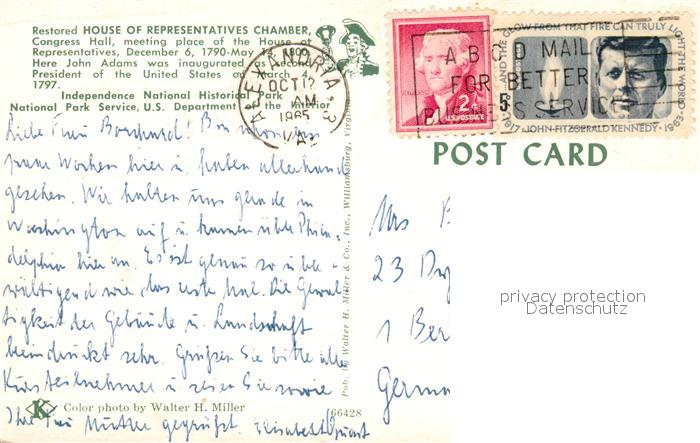 Restored HOUSE OF REPRESENTATIVES CHAMBER,
Congress Hall, meeting place of the House of
Representatives, December 6, 1790-May 14, 1800.
Here John Adams was inaugurated as second
President of the United States on March 4,
1797.
Independence National Historical Park
National Park Service, U.S. Department of the Interior
ALEXANDRIA
OCT 12
AM
1965
VA
A B C D MAIL
FOR BETTER
BUSINESS SERVICE
2¢
U.S. POSTAGE
AND THE GLOW FROM THAT FIRE CAN TRULY LIGHT THE WORLD
5
1917 · JOHN · FITZGERALD KENNEDY · 1963
POST CARD
Liebe Frau Bin schon ein
paar Wochen hier u. haben allerhand
gesehen. Wir halten uns gerade in
Washington auf u. kamen über Phila-
delphia hier an. Es ist genau so über-
wältigend wie das erste Mal. Die Gewal-
tigkeit der Gebäude u. Landschaft
beeindruckt sehr. Grüßen Sie bitte alle
Kursteilnehmer u. seien Sie sowie
Ihre Frau Mutter gegrüßt. Elisabeth
Pub. by Walter H. Miller & Co., Inc., Williamsburg, Virginia
K Color photo by Walter H. Miller
66428
Mrs B
23
1 Ber
Germa
privacy protection
Datenschutz